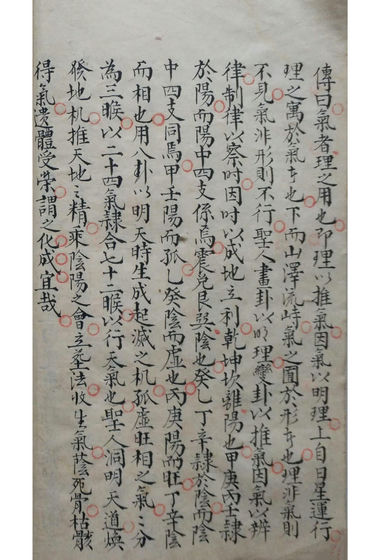 傳曰氣者理之用也即理以推氣因氣以明理上自日星運行
理之寓於氣者也下而山澤流峙氣之囿於形者也理非氣則
不見氣非形則不行聖人畫卦以明理變卦以推氣因氣以辨
律制律以察時因時以成地立利乾坤坎離陽也甲庚丙壬隷
於陽而陽中四支係焉震兌艮巽陰也癸乙丁辛隷於陰而陰
中四支同焉甲壬陽而孤乙癸陰而虛也丙庚陽而旺丁辛陰
而相也用八卦以明天時生成起滅之机孤虛旺相之氣々分
為三睺以二十四氣隷合七十二睺以行天氣也聖人洞明天道煥
發地机推天地之精乘陰陽之會立塟法收生氣蔭死骨枯骸
得氣遺體受榮謂之化成宜哉